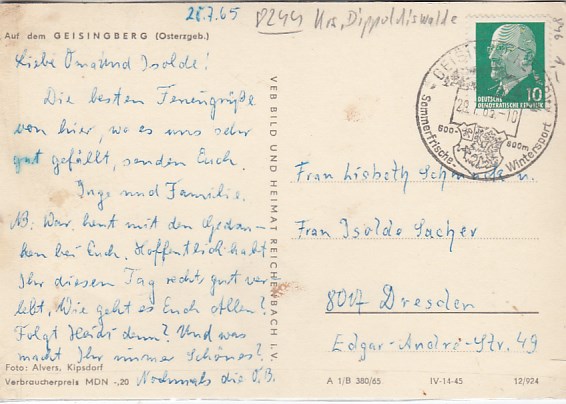 28.7.65
8244 Krs. Dippoldiswalde
Auf dem GEISINGBERG (Osterzgeb.)
Liebe Oma und Isolde!
Die besten Feriengrüße
von hier, wo es uns sehr
gut gefällt, senden Euch
Inge und Familie.
NB: War heut mit den Gedan-
ken bei Euch. Hoffentlich habt
Ihr diesen Tag recht gut ver-
lebt. Wie geht es Euch Allen?
Folgt Heidi denn? Und was
macht Ihr immer Schönes?
Nochmals die O.B.
Foto: Alvers, Kipsdorf
Verbraucherpreis MDN -,20
VEB BILD UND HEIMAT REICHENBACH I. V.
10
DEUTSCHE
DEMOKRATISCHE REPUBLIK
Sommerfrische - Wintersport
600-
800m
Frau Lisbeth Schmuck u.
Frau Isolde Sacher
8017 Dresden
Edgar-André-Str. 49
A 1/B 380/65 IV-14-45 12/924